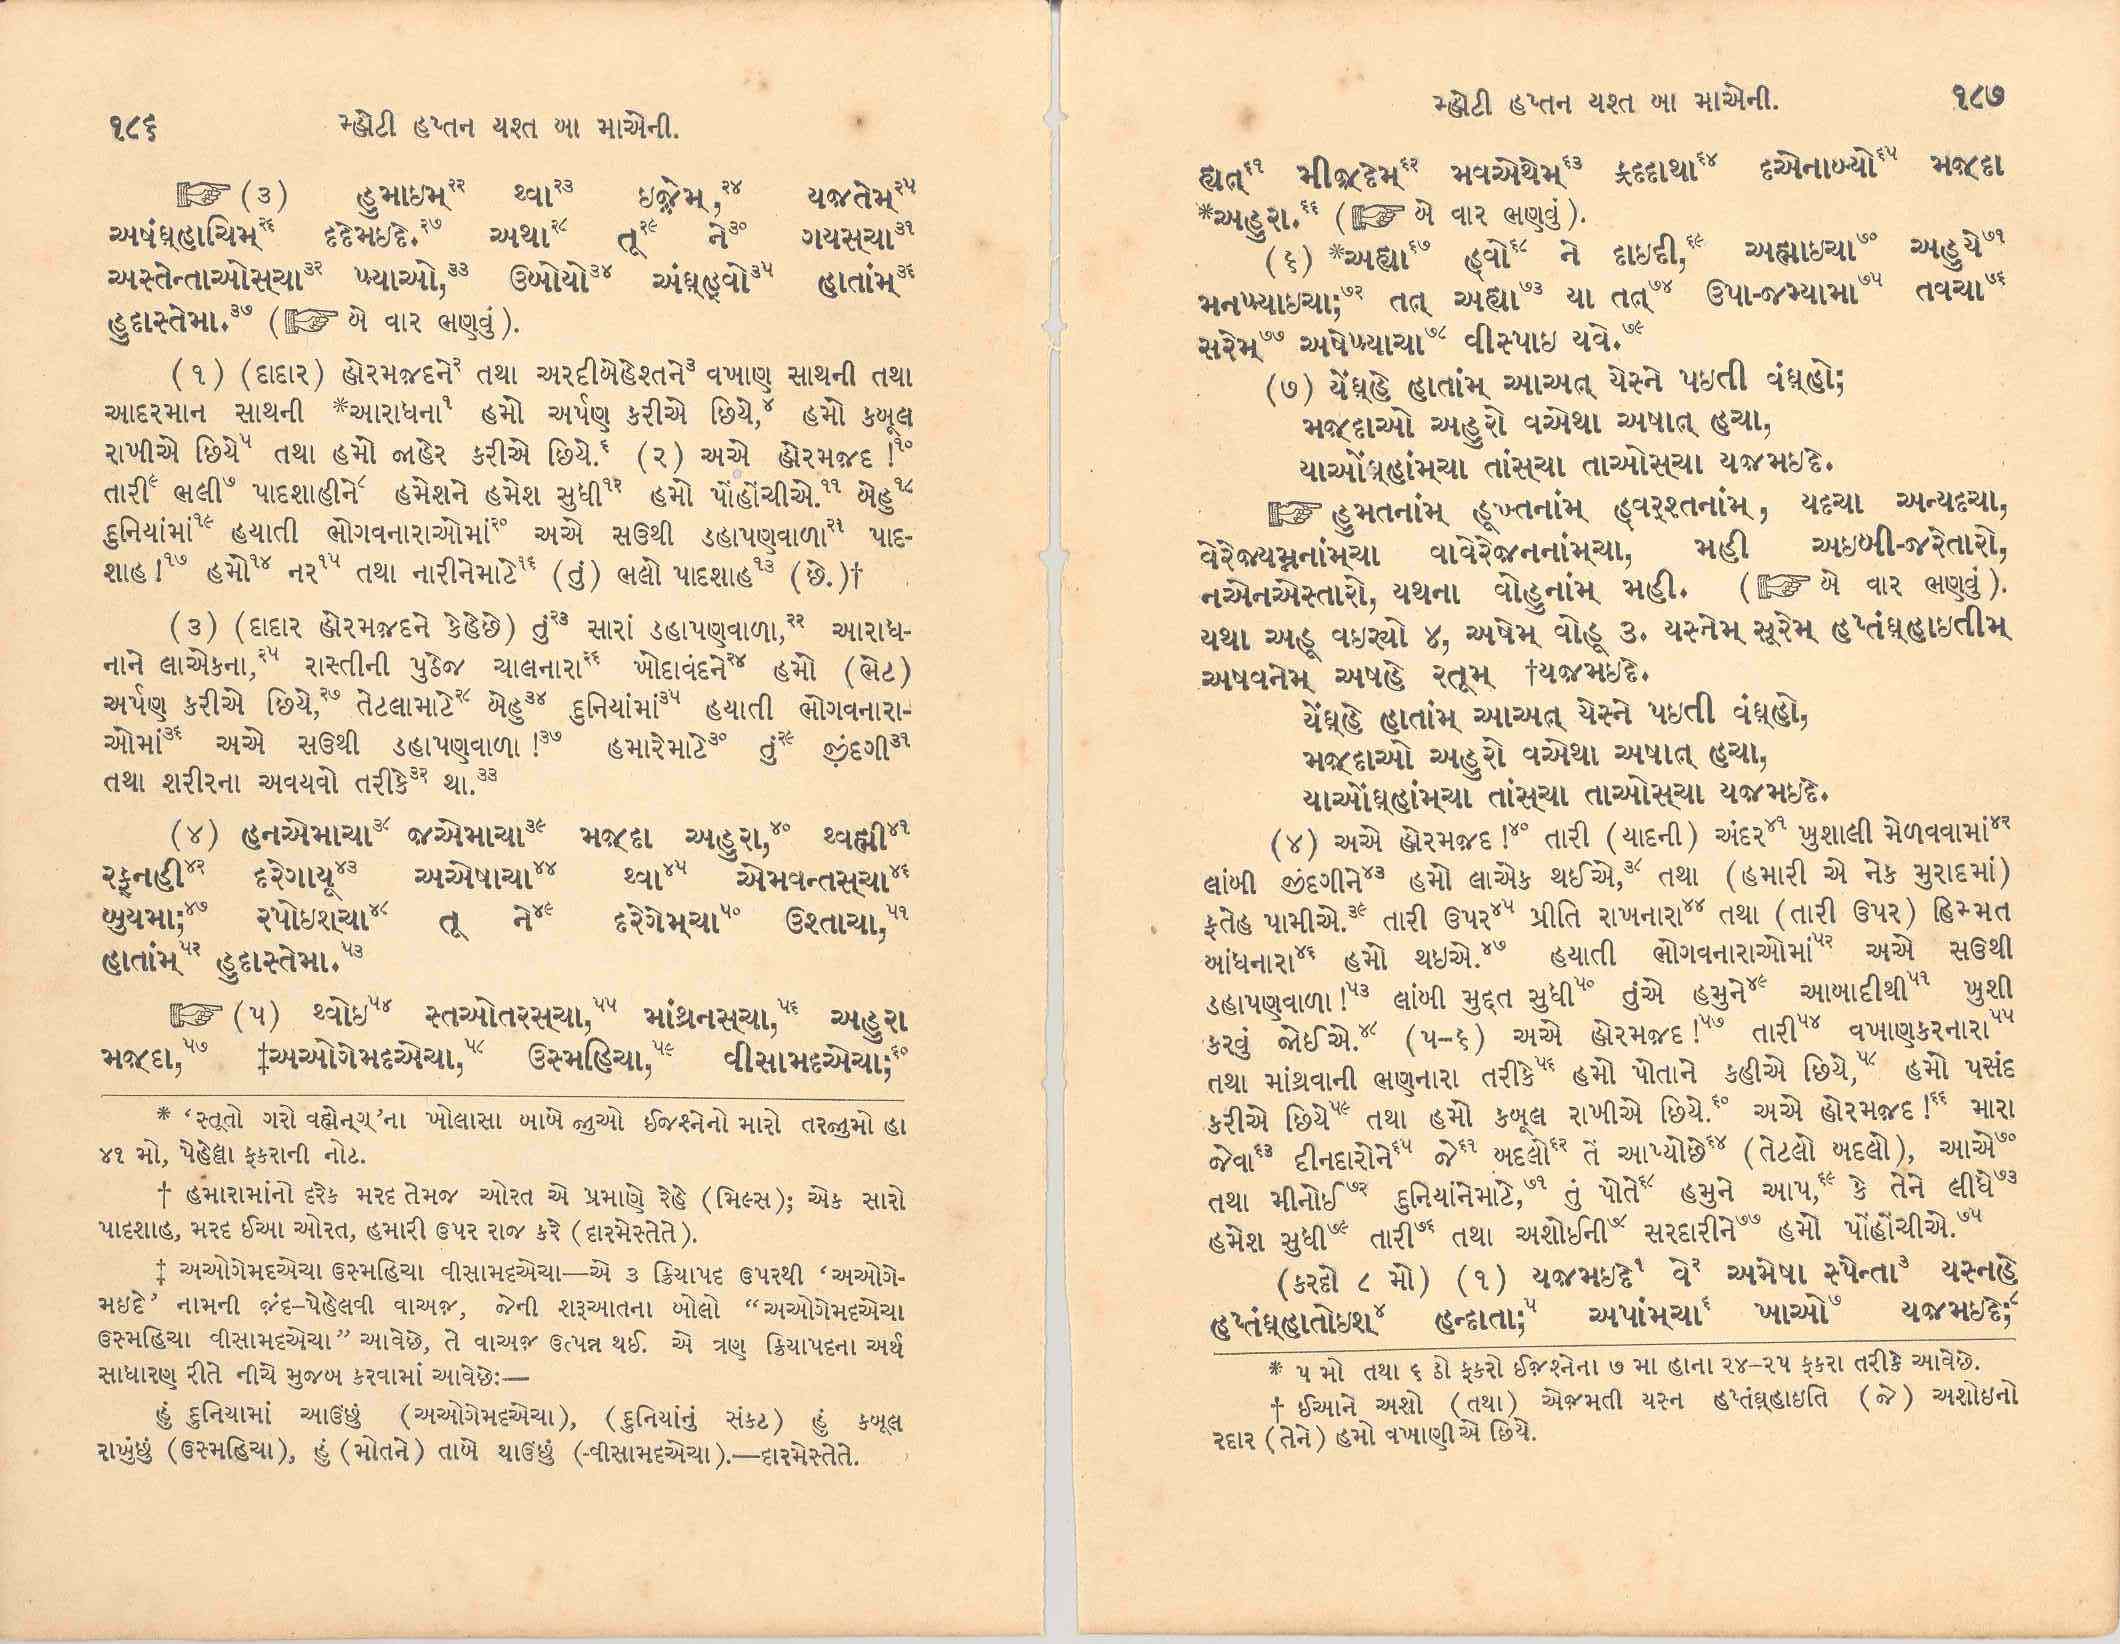 ૧૮૬ મ્હોટી હપ્તન યશ્ત બા માએની.
(૩) હુમાઇમ્૨૨ થ્વા૨૩ ઇજ઼ેમ્,૨૪ યજ઼તેમ્૨૫
અષંઘ્હાચિમ્૨૬ દદેમઇદે.૨૭ અથા૨૮ તૂ૨૯ ને૩૦ ગયસ્ચા૩૧
અસ્તેન્તાઓસ્ચા૩૨ ખ્યાઓ,૩૩ ઉબોયો૩૪ અંઘ્હ્વો૩૫ હાતાંમ્૩૬
હુદાસ્તેમા.૩૭ ( બે વાર ભણવું).
(૧) (દાદાર) હોરમજ઼દને૨ તથા અરદીબેહેશ્તને૩ વખાણ સાથની તથા
આદરમાન સાથની *આરાધના૧ હમો અર્પણ કરીએ છિયે,૪ હમો કબૂલ
રાખીએ છિયે૫ તથા હમો જાહેર કરીએ છિયે.૬ (૨) અએ હોરમજ઼દ !૧૦
તારી૯ ભલી૭ પાદશાહીને૮ હમેશને હમેશ સુધી૧૨ હમો પોંહોંચીએ.૧૧ બેહુ૧૮
દુનિયાંમાં૧૯ હયાતી ભોગવનારાઓમાં૨૦ અએ સઉથી ડહાપણવાળા૨૧ પાદ-
શાહ!૧૭ હમો૧૪ નર૧૫ તથા નારીનેમાટે૧૬ (તું) ભલો પાદશાહ૧૩ (છે.)†
(૩) (દાદાર હોરમજ઼દને કેહેછે) તું૨૩ સારાં ડહાપણવાળા,૨૨ આરાધ-
નાને લાએકના,૨૫ રાસ્તીની પુઠેજ ચાલનારા૨૬ ખોદાવંદને૨૪ હમો (ભેટ)
અર્પણ કરીએ છિયે,૨૭ તેટલામાટે૨૮ બેહુ૩૪ દુનિયાંમાં૩૫ હયાતી ભોગવનારા-
ઓમાં૩૬ અએ સઉથી ડહાપણવાળા !૩૭ હમારેમાટે૩૦ તું૨૯ જ઼ીંદગી૩૧
તથા શરીરના અવયવો તરીકે૩૨ થા.૩૩
(૪) હનએમાચા૩૮ જ઼એમાચા૩૯ મજ઼્દા અહુરા,૪૦ થ્વહ્મી૪૧
રફ્નહી૪૨ દરેગાયૂ૪૩ અએષાચા૪૪ થ્વા૪૫ એમવન્તસ્ચા૪૬
બુયમા;૪૭ રપોઇશ્ચા૪૮ તૂ ને૪૯ દરેગેમ્ચા૫૦ ઉશ્તાચા,૫૧
હાતાંમ્૫૨ હુદાસ્તેમા.૫૩
(૫) થ્વોઇ૫૪ સ્તઓતરસ્ચા,૫૫ માંથ્રનસ્ચા,૫૬ અહુરા
મજ઼્દા,૫૭ ‡અઓગેમદએચા,૫૮ ઉસ્મહિચા,૫૯ વીસામદએચા;૬૦
* ‘સ્તૂતો ગરો વહ્મેન્ગ્’ના ખોલાસા બાબે જુઓ ઈજશ્નેનો મારો તરજુમો હા
૪૧ મો, પેહેલ્લા ફકરાની નોટ.
† હમારામાંનો દરેક મરદ તેમજ ઓરત એ પ્રમાણે રેહે (મિલ્સ); એક સારો
પાદશાહ, મરદ ઈઆ ઓરત, હમારી ઉપર રાજ કરે (દારમેસ્તેતે).
‡ અઓગેમદએચા ઉસ્મહિચા વીસામદએચા—એ ૩ ક્રિયાપદ ઉપરથી ‘અઓગે-
મઇદે’ નામની જ઼ંદ-પેહેલવી વાઅજ઼, જેની શરૂઆતના બોલો “અઓગેમદએચા
ઉસ્મહિચા વીસામદએચા” આવેછે, તે વાઅજ઼ ઉત્પન્ન થઈ. એ ત્રણ ક્રિયાપદના અર્થ
સાધારણ રીતે નીચે મુજબ કરવામાં આવેછેઃ—
હું દુનિયામાં આઊંછું (અઓગેમદએચા), (દુનિયાંનું સંકટ) હું કબૂલ
રાખુંછું (ઉસ્મહિચા), હું (મોતને) તાબે થાઊંછું (-વીસામદએચા).—દારમેસ્તેતે.
મ્હોટી હપ્તન યશ્ત બા માએની. ૧૮૭
હ્યત્૬૧ મીજ઼્દેમ્૬૨ મવએથેમ્૬૩ ફ્રદદાથા૬૪ દએનાબ્યો૬૫ મજ઼્દા
*અહુરા.૬૬ ( બે વાર ભણવું).
(૬) *અહ્યા૬૭ હ્વો૬૮ ને દાઇદી,૬૯ અહ્માઇચા૭૦ અહુયે૭૧
મનખ્યાઇચા;૭૨ તત્ અહ્યા૭૩ યા તત્૭૪ ઉપા-જમ્યામા૭૫ તવચા૭૬
સરેમ્૭૭ અષેખ્યાચા૭૮ વીસ્પાઇ યવે.૭૯
(૭) યેંઘ્હે હાતાંમ્ આઅત્ યેસ્ને પઇતી વંઘ્હો;
મજ઼્દાઓ અહુરો વએથા અષાત્ હચા,
યાઓંઘ્હાંમ્ચા તાંસ્ચા તાઓસ્ચા યજ઼મઇદે.
હુમતનાંમ્ હૂખ્તનાંમ્ હ્વર્શ્તનાંમ્, યદચા અન્યદચા,
વેરેજ઼્યમ્નનાંમ્ચા વાવેરેજ઼નનાંમ્ચા, મહી અઇબી-જરેતારો,
નએનએસ્તારો, યથના વોહુનાંમ્ મહી. ( બે વાર ભણવું).
યથા અહૂ વઇર્યો ૪, અષેમ્ વોહૂ ૩. યસ્નેમ્ સૂરેમ્ હપ્તંઘ્હાઇતીમ્
અષવનેમ્ અષહે રતૂમ્ †યજ઼મઇદે.
યેંઘ્હે હાતાંમ્ આઅત્ યેસ્ને પઇતી વંઘ્હો,
મજ઼્દાઓ અહુરો વએથા અષાત્ હચા,
યાઓંઘ્હાંમ્ચા તાંસ્ચા તાઓસ્ચા યજ઼મઇદે.
(૪) અએ હોરમજ઼દ !૪૦ તારી (યાદની) અંદર૪૧ ખુશાલી મેળવવામાં૪૨
લાંબી જ઼ીંદગીને૪૩ હમો લાએક થઈએ,૩૮ તથા (હમારી એ નેક મુરાદમાં)
ફતેહ પામીએ.૩૯ તારી ઉપર૪૫ પ્રીતિ રાખનારા૪૪ તથા (તારી ઉપર) હિમ્મત
બાંધનારા૪૬ હમો થઇએ.૪૭ હયાતી ભોગવનારાઓમાં૫૨ અએ સઉથી
ડહાપણવાળા!૫૩ લાંબી મુદ્દત સુધી૫૦ તુંએ હમુને૪૯ આબાદીથી૫૧ ખુશી
કરવું જોઈએ.૪૮ (૫-૬) અએ હોરમજ઼દ!૫૭ તારી૫૪ વખાણકરનારા૫૫
તથા માંથ્રવાની ભણનારા તરીકે૫૬ હમો પોતાને કહીએ છિયે,૫૮ હમો પસંદ
કરીએ છિયે૫૯ તથા હમો કબૂલ રાખીએ છિયે.૬૦ અએ હોરમજ઼દ!૬૬ મારા
જેવા૬૩ દીનદારોને૬૫ જે૬૧ બદલો૬૨ તેં આપ્યોછે૬૪ (તેટલો બદલો), આએ૭૦
તથા મીનોઈ૭૨ દુનિયાંનેમાટે,૭૧ તું પોતે૬૮ હમુને આપ,૬૯ કે તેને લીધે૭૩
હમેશ સુધી૭૯ તારી૭૬ તથા અશોઈની૭૮ સરદારીને૭૭ હમો પોંહોંચીએ.૭૫
(કરદો ૮ મો) (૧) યજ઼મઇદે૧ વે૨ અમેષા સ્પેન્તા૩ યસ્નહે
હપ્તંઘ્હાતોઇશ્૪ હન્દાતા;૫ અપાંમ્ચા૬ ખાઓ૭ યજ઼મઇદે;૮
* ૫ મો તથા ૬ ઠો ફકરો ઈજ઼શ્નેના ૭ મા હાના ૨૪–૨૫ ફકરા તરીકે આવેછે.
† ઈઆને અશો (તથા) એજમતી યસ્ન હપ્તંઘ્હાઇતિ (જે) અશોઇનો
રદાર (તેને) હમો વખાણીએ છિયે.